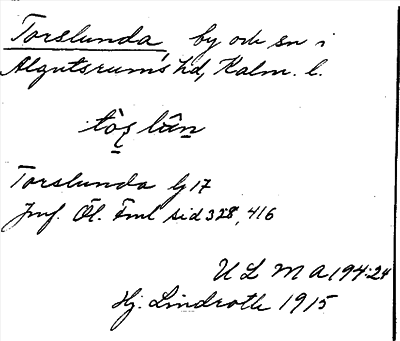 Torslunda, by och sn i
Algutsrums hd, Kalm. l.
Torslunda Gj 17
Jmf. Öl. Fml sid 328, 416
U L M A 194:24
Hj. Lindroth 1915